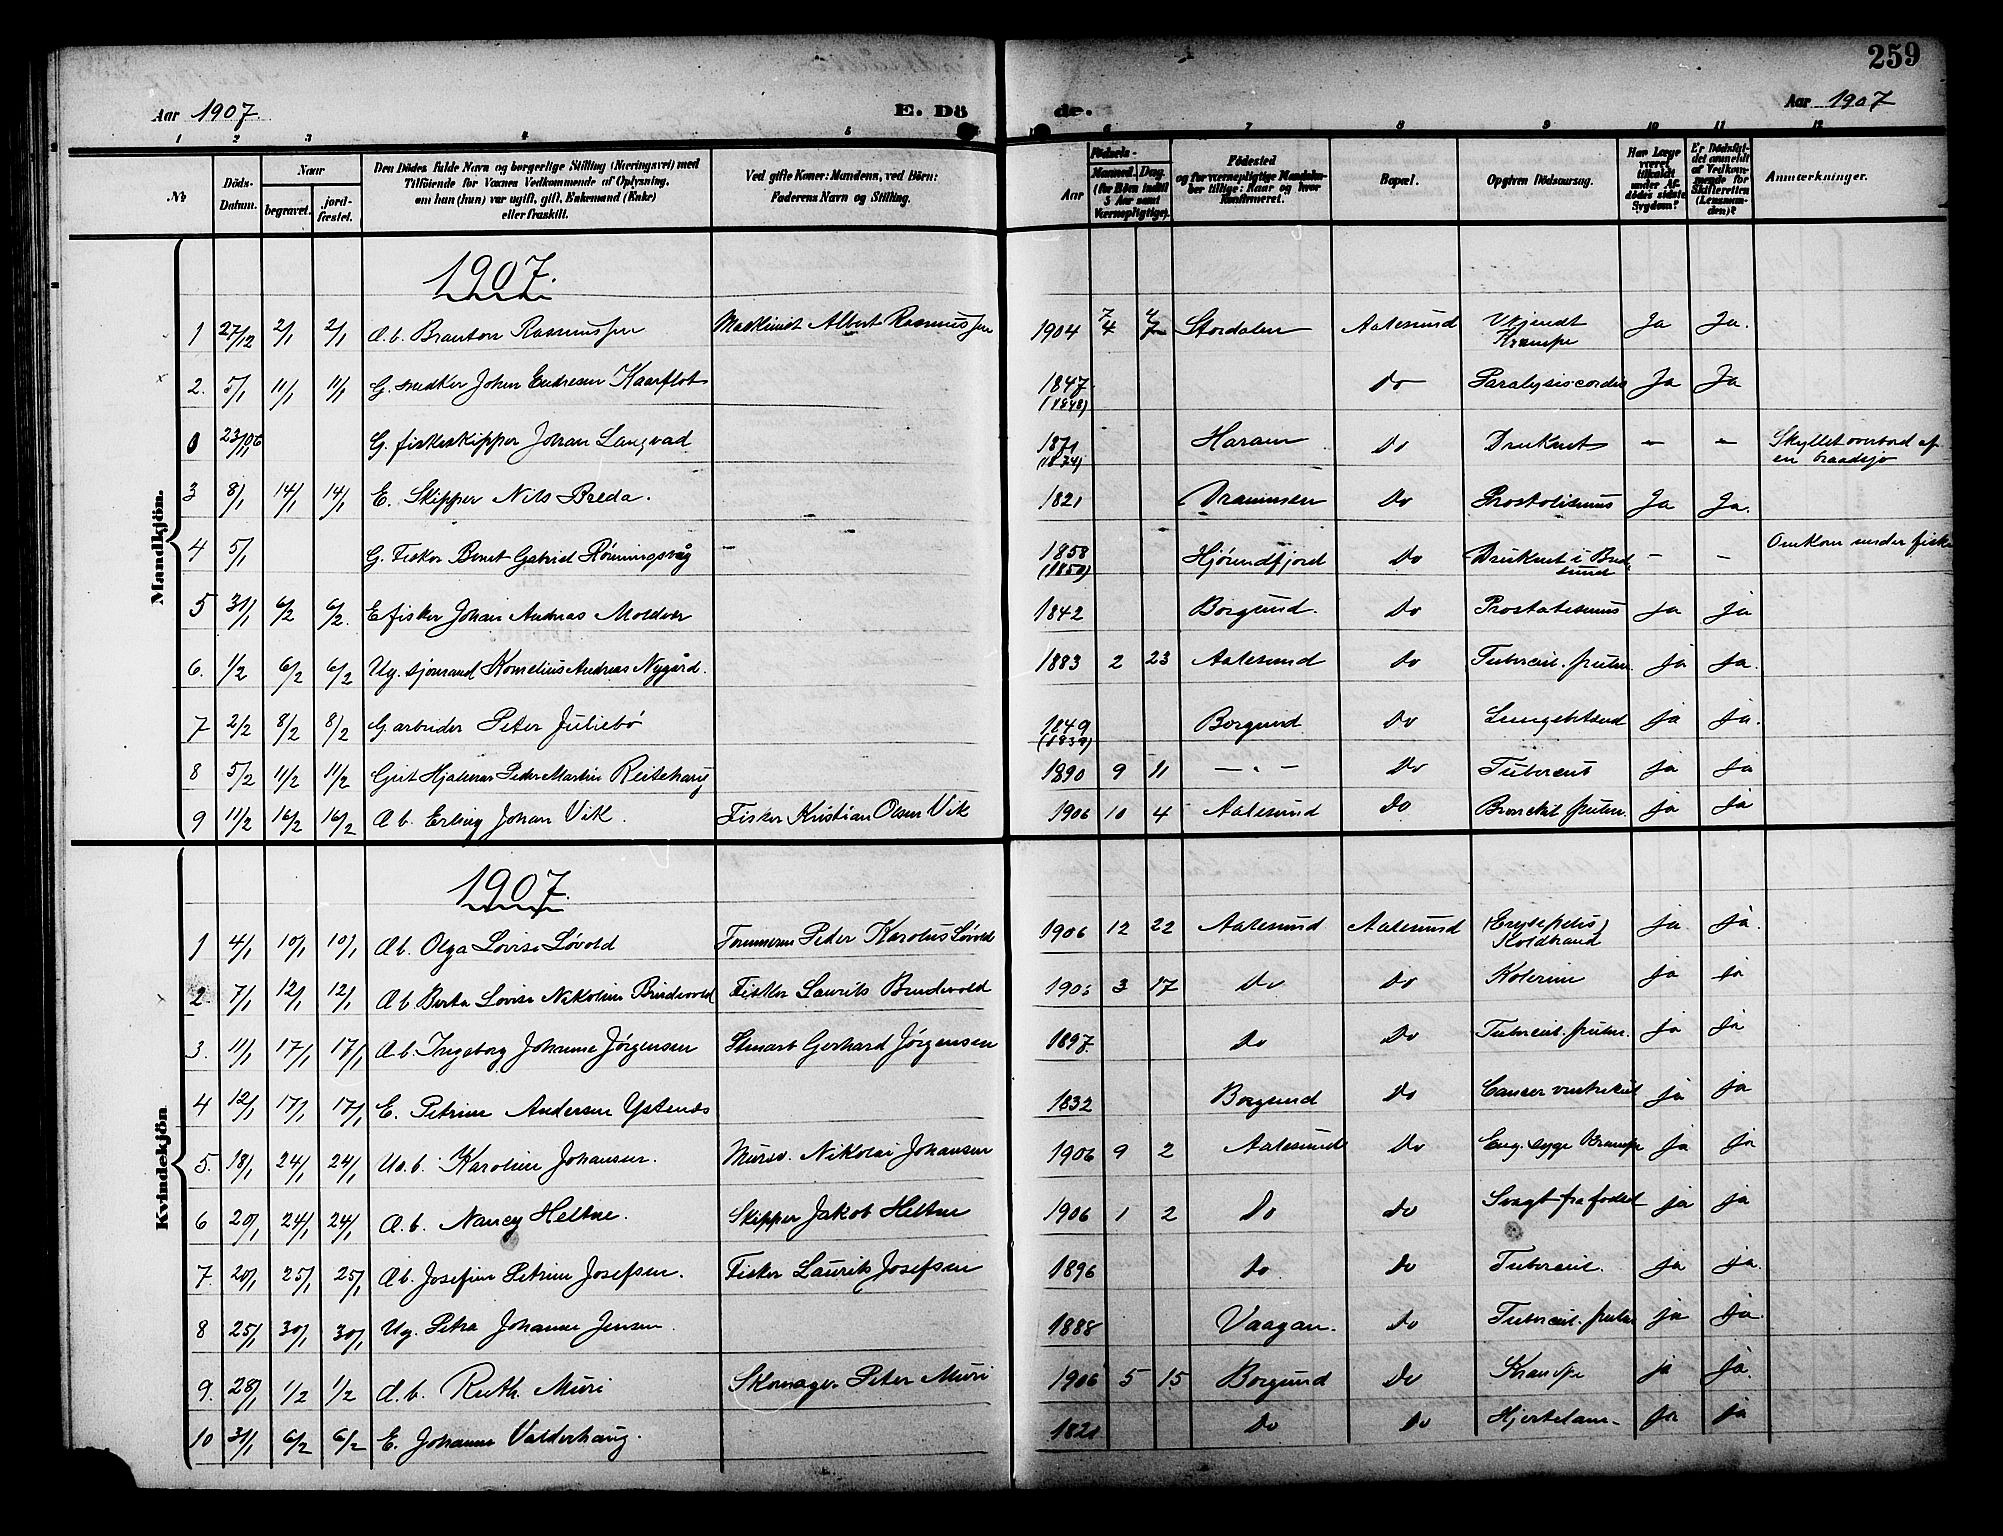 259
Aar 1907 E. Dö de. Aar 1907
1 2 3 4 5 6 7 8 9 10 11 12
No
Döds-Datum.
Naar
begravet.
jord-fæstet.
Den Dödes fulde Navn og borgerlige Stilling (Næringsvei) med
Tilföiende for Voxnes Vedkommende af Oplysning,
om han (hun) var ugift, gift, Enkemand (Enke)
eller fraskilt.
Ved gifte Koner: Mandens, ved Börn:
Faderens Navn og Stilling.
Födsels-
Aar
Maaned. Dag.
(for Börn indtil
5 Aar samt
Værnepligtige).
Födested
og for værnepligtige Mandskaber
tillige: Naar og hvor
konfirmeret.
Bopæl.
Opgiven Dödsaarsag.
Har Læge
været
tilkaldt
under Afdödes
sidste
Sygdom?
Er Dödsfaldet
anmeldt
af Vedkommende
for
Skifteretten
(Lensmanden)?
Anmærkninger.
Mandkjön.
1907.
1 27/12 2/1 2/1 Æ.b. Branton Rasmussen Maskinist Albert Rasmussen 1904 4 7 Stordalen Aalesund Ukjendt Krampe Ja Ja.
2. 5/1 11/1 11/1 G. snedker Johan Endresen Kaarflot 1847 (1848) Do Paralysis cordis Ja Ja
0 23/11 06 G. fiskeskipper Johan Langvad 1871 (1874) Haram Do Druknet - - Skyllet overbord af en braadsjø
3 8/1 14/1 14/1 E. Skipper Nils Breda. 1821 Drammen Do Prostatismus Ja Ja.
4 5/1 G. Fisker Bernt Gabriel Rønningsvåg - 1858 (1859) Hjørundfjord Do Druknet i Bredsund - - Omkom under fiske
5 31/1 6/2 6/2. E fisker Johan Andreas Moldvær 1842 Borgund. Do Prostatismus ja ja
6. 1/2 6/2 6/2 Ug. sjømand Kornelius Andreas Nygård. 1883 2 23 Aalesund Do Tubercul. pulm. ja ja.
7 2/2 8/2 8/2 G arbeider Peter Juliebø 1849 (1839) Borgund Do Lungebetænd ja ja.
8 5/2 11/2 11/2 Gut Hjalmar Peder Martin Reitehaug 1890 9 11 - " - Do Tubercul ja ja
9 11/2 16/2 16/2 Æ b. Erling Johan Vik. Fisker Kristian Olsen Vik 1906 10 4 Aalesund Do Bronckit pulm. ja ja
Kvindekjön
1907.
1 4/1 10/1 10/1 Æb. Olga Lovise Løvold Tømmerm Peder Karolus Løvold 1906 12 22 Aalesund Aalesund Erysepelis, Koldbrand ja ja.
2 7/1 12/1 12/1 Æ b. Berta Lovise Nikoline Brudevold Fisker Laurits Brudevold 3 17 Do Do Kolerine ja ja
3. 11/1 17/1 17/1 Æ b. Ingeborg Johanne Jørgensen Stuart Gerhard Jørgensen 1897. Do Do Tubercul. pulm. ja ja
4 12/1 17/1 17/1 E. Petrine Andersen Ystenes 1832 Borgsund Do Cancer ventrikul ja ja
5. 18/1 24/1 24/1 Uæ.b. Karoline Johansen. Mursv. Nikolai Johansen 1906 9 2 Aalesund Do Eng. syge Krampe ja ja
6 20/1 24/1 24/1 Æ.b. Nancy Heltne. Skipper Jakob Heltne 1906 1 2 Do Do Svagt fra fødsel ja ja
7. 20/1 25/1 25/1 Æb. Josefine Petrine Josefsen. Fisker Laurits Josefsen 1896 Do Do Tubercul. ja ja.
8 25/1 30/1 30/1 Ug. Petra Johanne Jensen. 1888 Vaagan. Do Tubercul. pulm ja ja.
9. 28/1 1/2 1/2 Æ.b. Ruth Muri Skomager Peter Muri 1906 5 15 Borgund Do Krampe ja ja.
10 31/1 6/2 6/2 E. Johanne Valderhaug. 1821 Do Do Hjertelam- ja ja